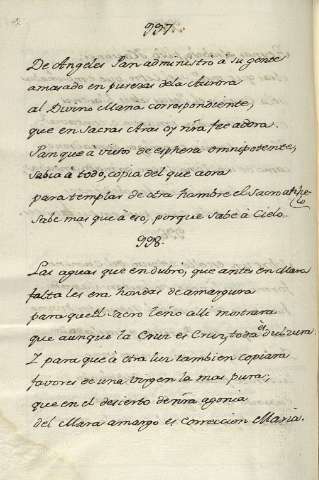 997.
De Angeles Pan administró á su gente
amasado en purezas dela Aurora
al Divino Maná correspondiente,
que en Sacras Aras oy ñra fee adora.
Pan que á visos de esphera omnipotente,
sabia á todo, copia del que aora
para templar de otra hambre el Sacro
sabe mas que á eso, porque sabe à Cielo.
998.
Las aguas que en dubro, que antes en Mara
falta les era hondas de amargura
para que el Sacro leño alli mostrara
que aunque la Cruz es Cruz, toda es dulzura.
Y para que à otra luz tambien copiara
favores de una virgen la mas pura;
que en el desierto de ñra agonia
del Mara amargo es correccion Maria.